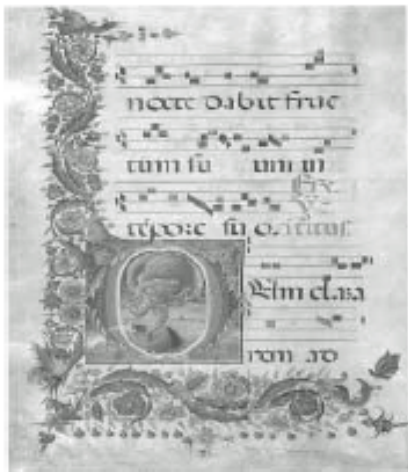 nocte dabit fruc
tum su um in
tēpore su o.
dum clama
rem ad